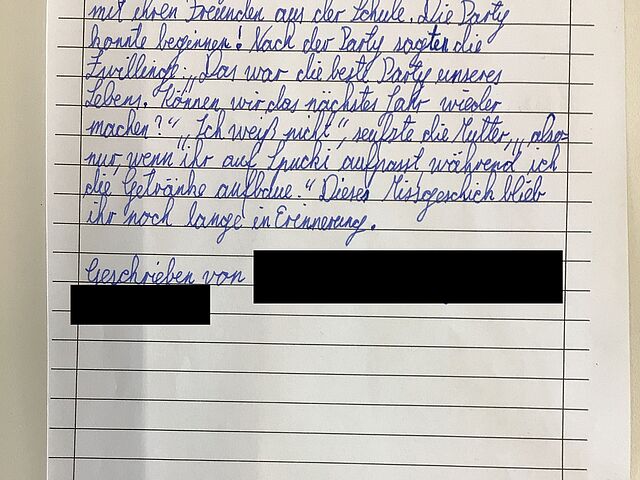 mit ihren Freunden aus der Schule. Die Party
konnte beginnen! Nach der Party sagten die
Zwillinge: „Das war die beste Party unseres
Lebens. Können wir das nächstes Jahr wieder
machen?“ „Ich weiß nicht“, seufste die Mutter, „also
nur, wenn ihr auf Spucki aufpasst während ich
die Getränke aufbaue.“ Dieses Missgeschick blieb
ihr noch lange in Erinnerung.
Geschrieben von